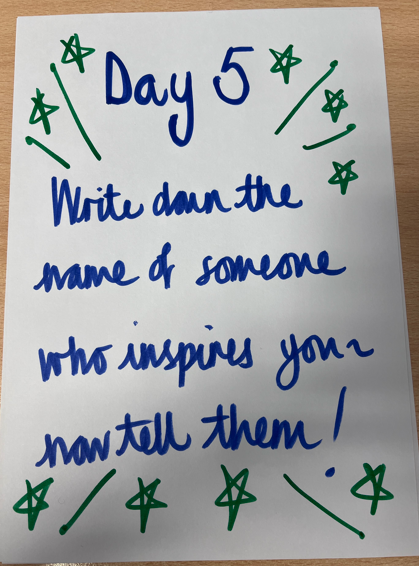 Day 5
Write down the
name of someone
who inspires you~
now tell them!